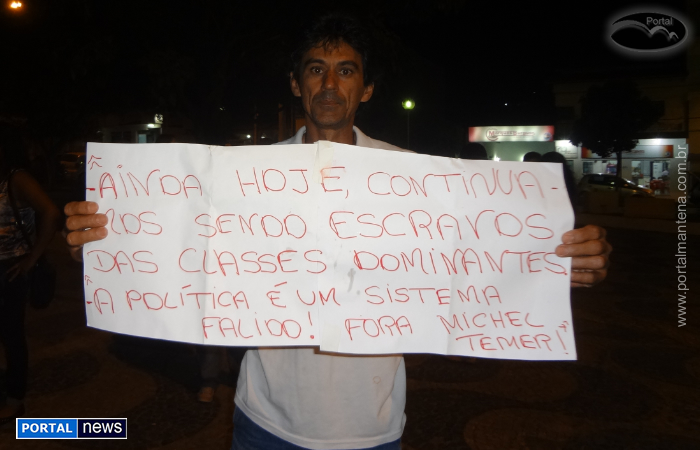 Portal
"
-AINDA HOJE, CONTINUA-
MOS SENDO ESCRAVOS
DAS CLASSES DOMINANTES.
"
-A POLÍTICA É UM SISTEMA
FALIDO! FORA MICHEL
TEMER!"
www.portalmantena.com.br
PORTAL news